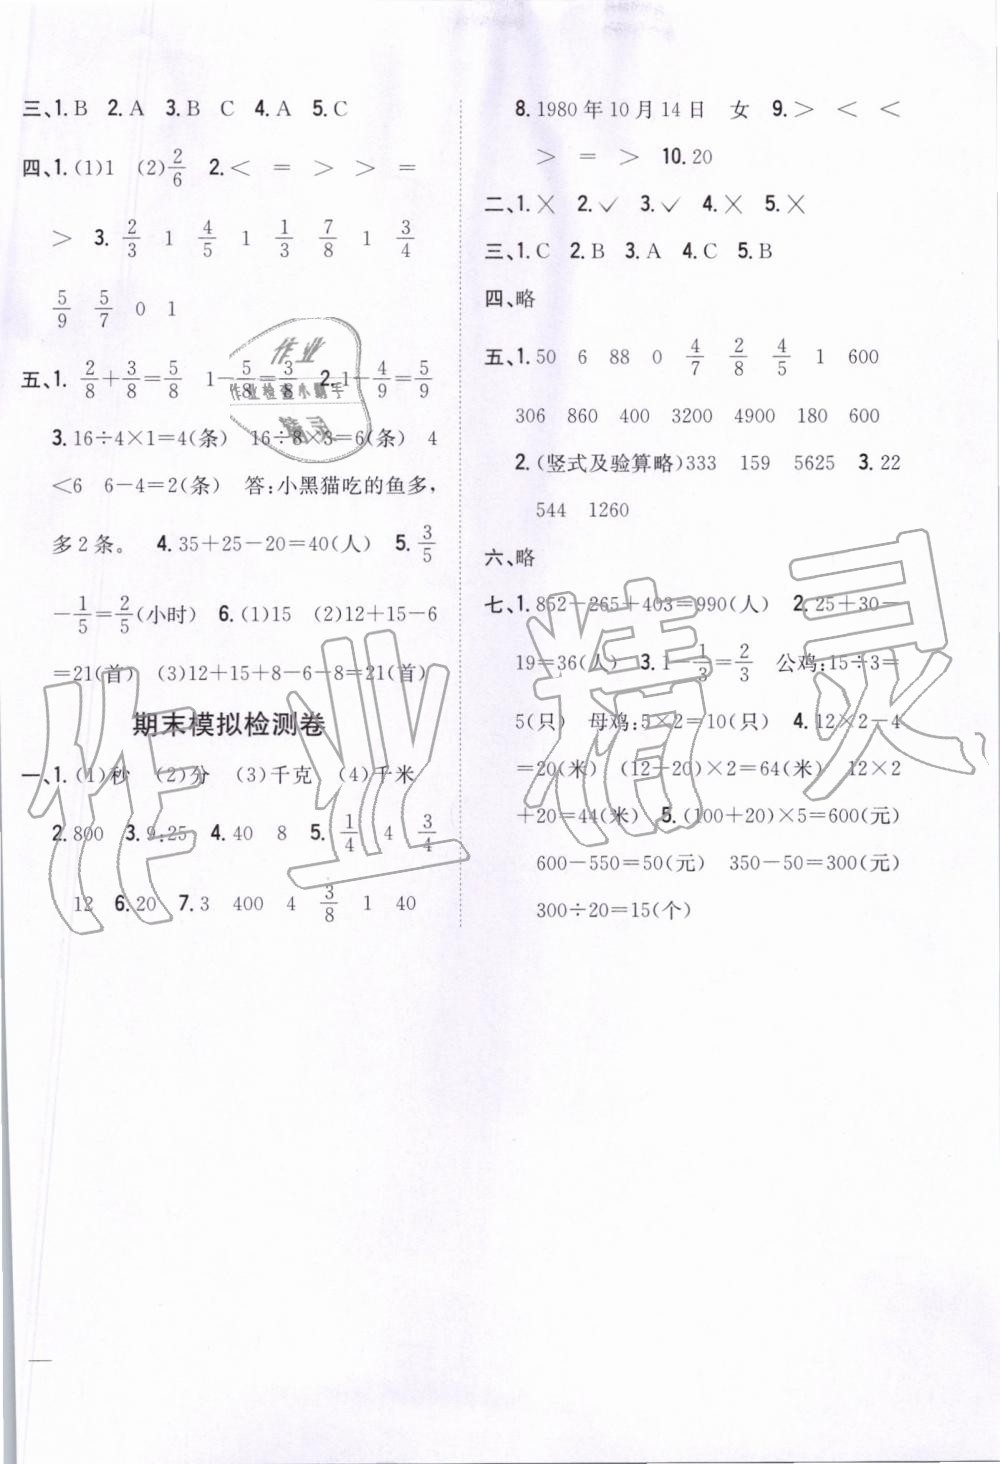 三、1. B 2. A 3. B C 4. A 5. C
四、1. (1)1 (2)2/6 2. < = > > =
> 3. 2/3 1 4/5 1 1/3 7/8 1 3/4
5/9 5/7 0 1
五、1. 2/8+3/8=5/8 1-5/8=3/8 2. 1-4/9=5/9
3. 16÷4×1=4(条) 16÷8×3=6(条) 4
<6 6-4=2(条) 答:小黑猫吃的鱼多,
多2条。 4. 35+25-20=40(人) 5. 3/5
-1/5=2/5(小时) 6. (1)15 (2)12+15-6
=21(首) (3)12+15+8-6-8=21(首)
期末模拟检测卷
一、1. (1)秒 (2)分 (3)千克 (4)千米
2. 800 3. 9:25 4. 40 8 5. 1/4 4 3/4
12 6. 20 7. 3 400 4 3/8 1 40
8. 1980年10月14日 女 9. > < <
> = > 10. 20
二、1. ╳ 2. ✓ 3. ✓ 4. ╳ 5. ╳
三、1. C 2. B 3. A 4. C 5. B
四、略
五、1. 50 6 88 0 4/7 2/8 4/5 1 600
306 860 400 3200 4900 180 600
2. (竖式及验算略)333 159 5625 3. 22
544 1260
六、略
七、1. 852-265+403=990(人) 2. 25+30-
19=36(人) 3. 1-1/3=2/3 公鸡:15÷3=
5(只) 母鸡:5×2=10(只) 4. 12×2-4
=20(米) (12+20)×2=64(米) 12×2
+20=44(米) 5. (100+20)×5=600(元)
600-550=50(元) 350-50=300(元)
300÷20=15(个)
作业
作业检查小帮手
精灵
作业精灵